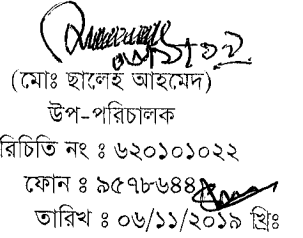 (মোঃ ছালেহ আহমেদ)
উপ-পরিচালক
রিচিতি নং ঃ ৬২০১০১০২২
ফোন ঃ ৯৫৭৮৬৪৪
তারিখ ঃ ০৬/১১/২০১৯ খ্রিঃ